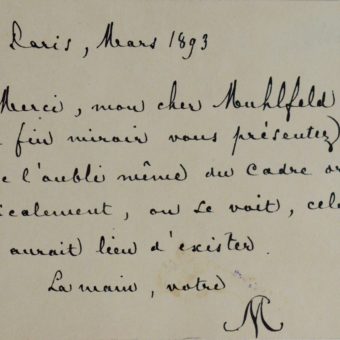 Paris, Mars 1893
Merci, mon cher Muhlfeld
fin miroir vous présentez)
l'oubli même du cadre or
icalement, on le voit, cela
aurait lieu d'exister.
La main, votre
M